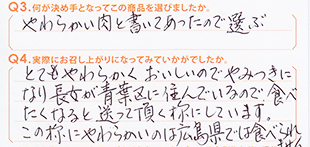 Q3.何が決め手となってこの商品を選びましたか。
やわらかい肉と書いてあったので選ぶ
Q4.実際にお召し上がりになってみていかがでしたか。
とてもやわらかく おいしいのでやみつきに
なり長女が青葉区に住んでいるので食べ
たくなると送って頂く様にしています。
この様にやわらかいのは広島県では食べられ
ません